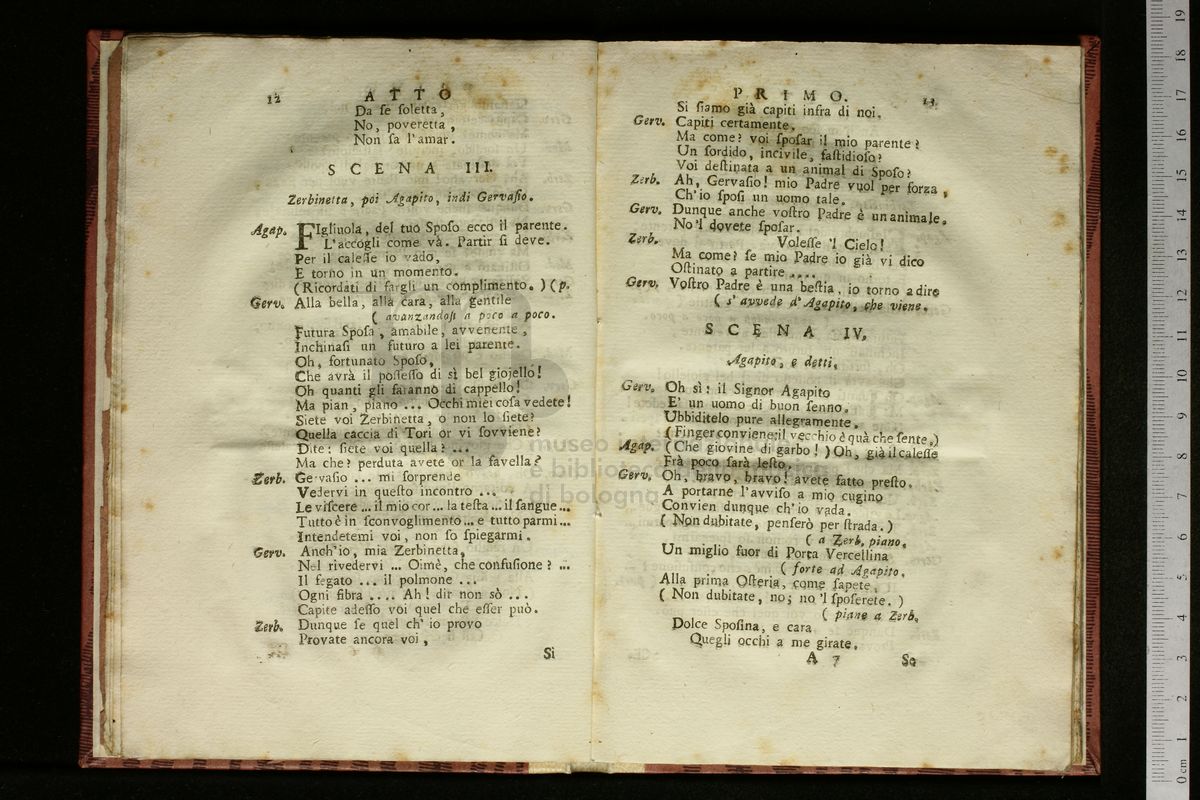 12 ATTO
Da se ſoletta,
No, poveretta,
Non ſa l'amar.
SCENA III.
Zerbinetta, poi Agapito, indi Gervaſio.
Agap. FIgliuola, del tuo Spoſo ecco il parente.
L'accogli come và. Partir ſi deve.
Per il caleſſe io vado,
E torno in un momento.
(Ricordati di fargli un complimento.) (p.
Gerv. Alla bella, alla cara, alla gentile
( avanzandoſi a poco a poco.
Futura Spoſa, amabile, avvenente,
Inchinaſi un futuro a lei parente.
Oh, fortunato Spoſo,
Che avrà il poſſeſſo di sì bel giojello!
Oh quanti gli faranno di cappello!
Ma pian, piano ... Occhi miei coſa vedete!
Siete voi Zerbinetta, o non lo ſiete?
Quella caccia di Tori or vi ſovviene?
Dite: ſiete voi quella? ...
Ma che? perduta avete or la favella?
Zerb. Gervaſio ... mi ſorprende
Vedervi in queſto incontro ...
Le viſcere ... il mio cor ... la teſta ... il ſangue ...
Tutto è in ſconvoglimento ... e tutto parmi ...
Intendetemi voi, non ſo ſpiegarmi.
Gerv. Anch'io, mia Zerbinetta,
Nel rivedervi ... Oimè, che confuſione? ...
Il fegato ... il polmone ...
Ogni fibra .... Ah! dir non sò ...
Capite adeſſo voi quel che eſſer può.
Zerb. Dunque ſe quel ch'io provo
Provate ancora voi,
Si
PRIMO. 13
Si ſiamo già capiti infra di noi.
Gerv. Capiti certamente.
Ma come? voi ſpoſar il mio parente?
Un ſordido, incivile, faſtidioſo?
Voi deſtinata a un animal di Spoſo?
Zerb. Ah, Gervaſio! mio Padre vuol per forza,
Ch'io ſpoſi un uomo tale.
Gerv. Dunque anche voſtro Padre è un animale.
No'l dovete ſpoſar.
Zerb. Voleſſe 'l Cielo!
Ma come? ſe mio Padre io già vi dico
Oſtinato a partire ....
Gerv. Voſtro Padre è una beſtia, io torno a dire
( s'avvede d'Agapito, che viene.
SCENA IV.
Agapito, e detti.
Gerv. Oh sì: il Signor Agapito
E' un uomo di buon ſenno.
Ubbiditelo pure allegramente.
(Finger conviene: il vecchio è quà che ſente.)
Agap. (Che giovine di garbo!) Oh, già il caleſſe
Frà poco ſarà leſto.
Gerv. Oh, bravo, bravo! avete fatto preſto.
A portarne l'avviſo a mio cugino
Convien dunque ch'io vada.
( Non dubitate, penſerò per ſtrada.)
( a Zerb. piano.
Un miglio fuor di Porta Vercellina
( forte ad Agapito.
Alla prima Oſteria, come ſapete.
( Non dubitate, no; no'l ſpoſerete.)
( piane a Zerb.
Dolce Spoſina, e cara
Quegli occhi a me girate.
A 7 Se
museo
e biblioteca
di bologna